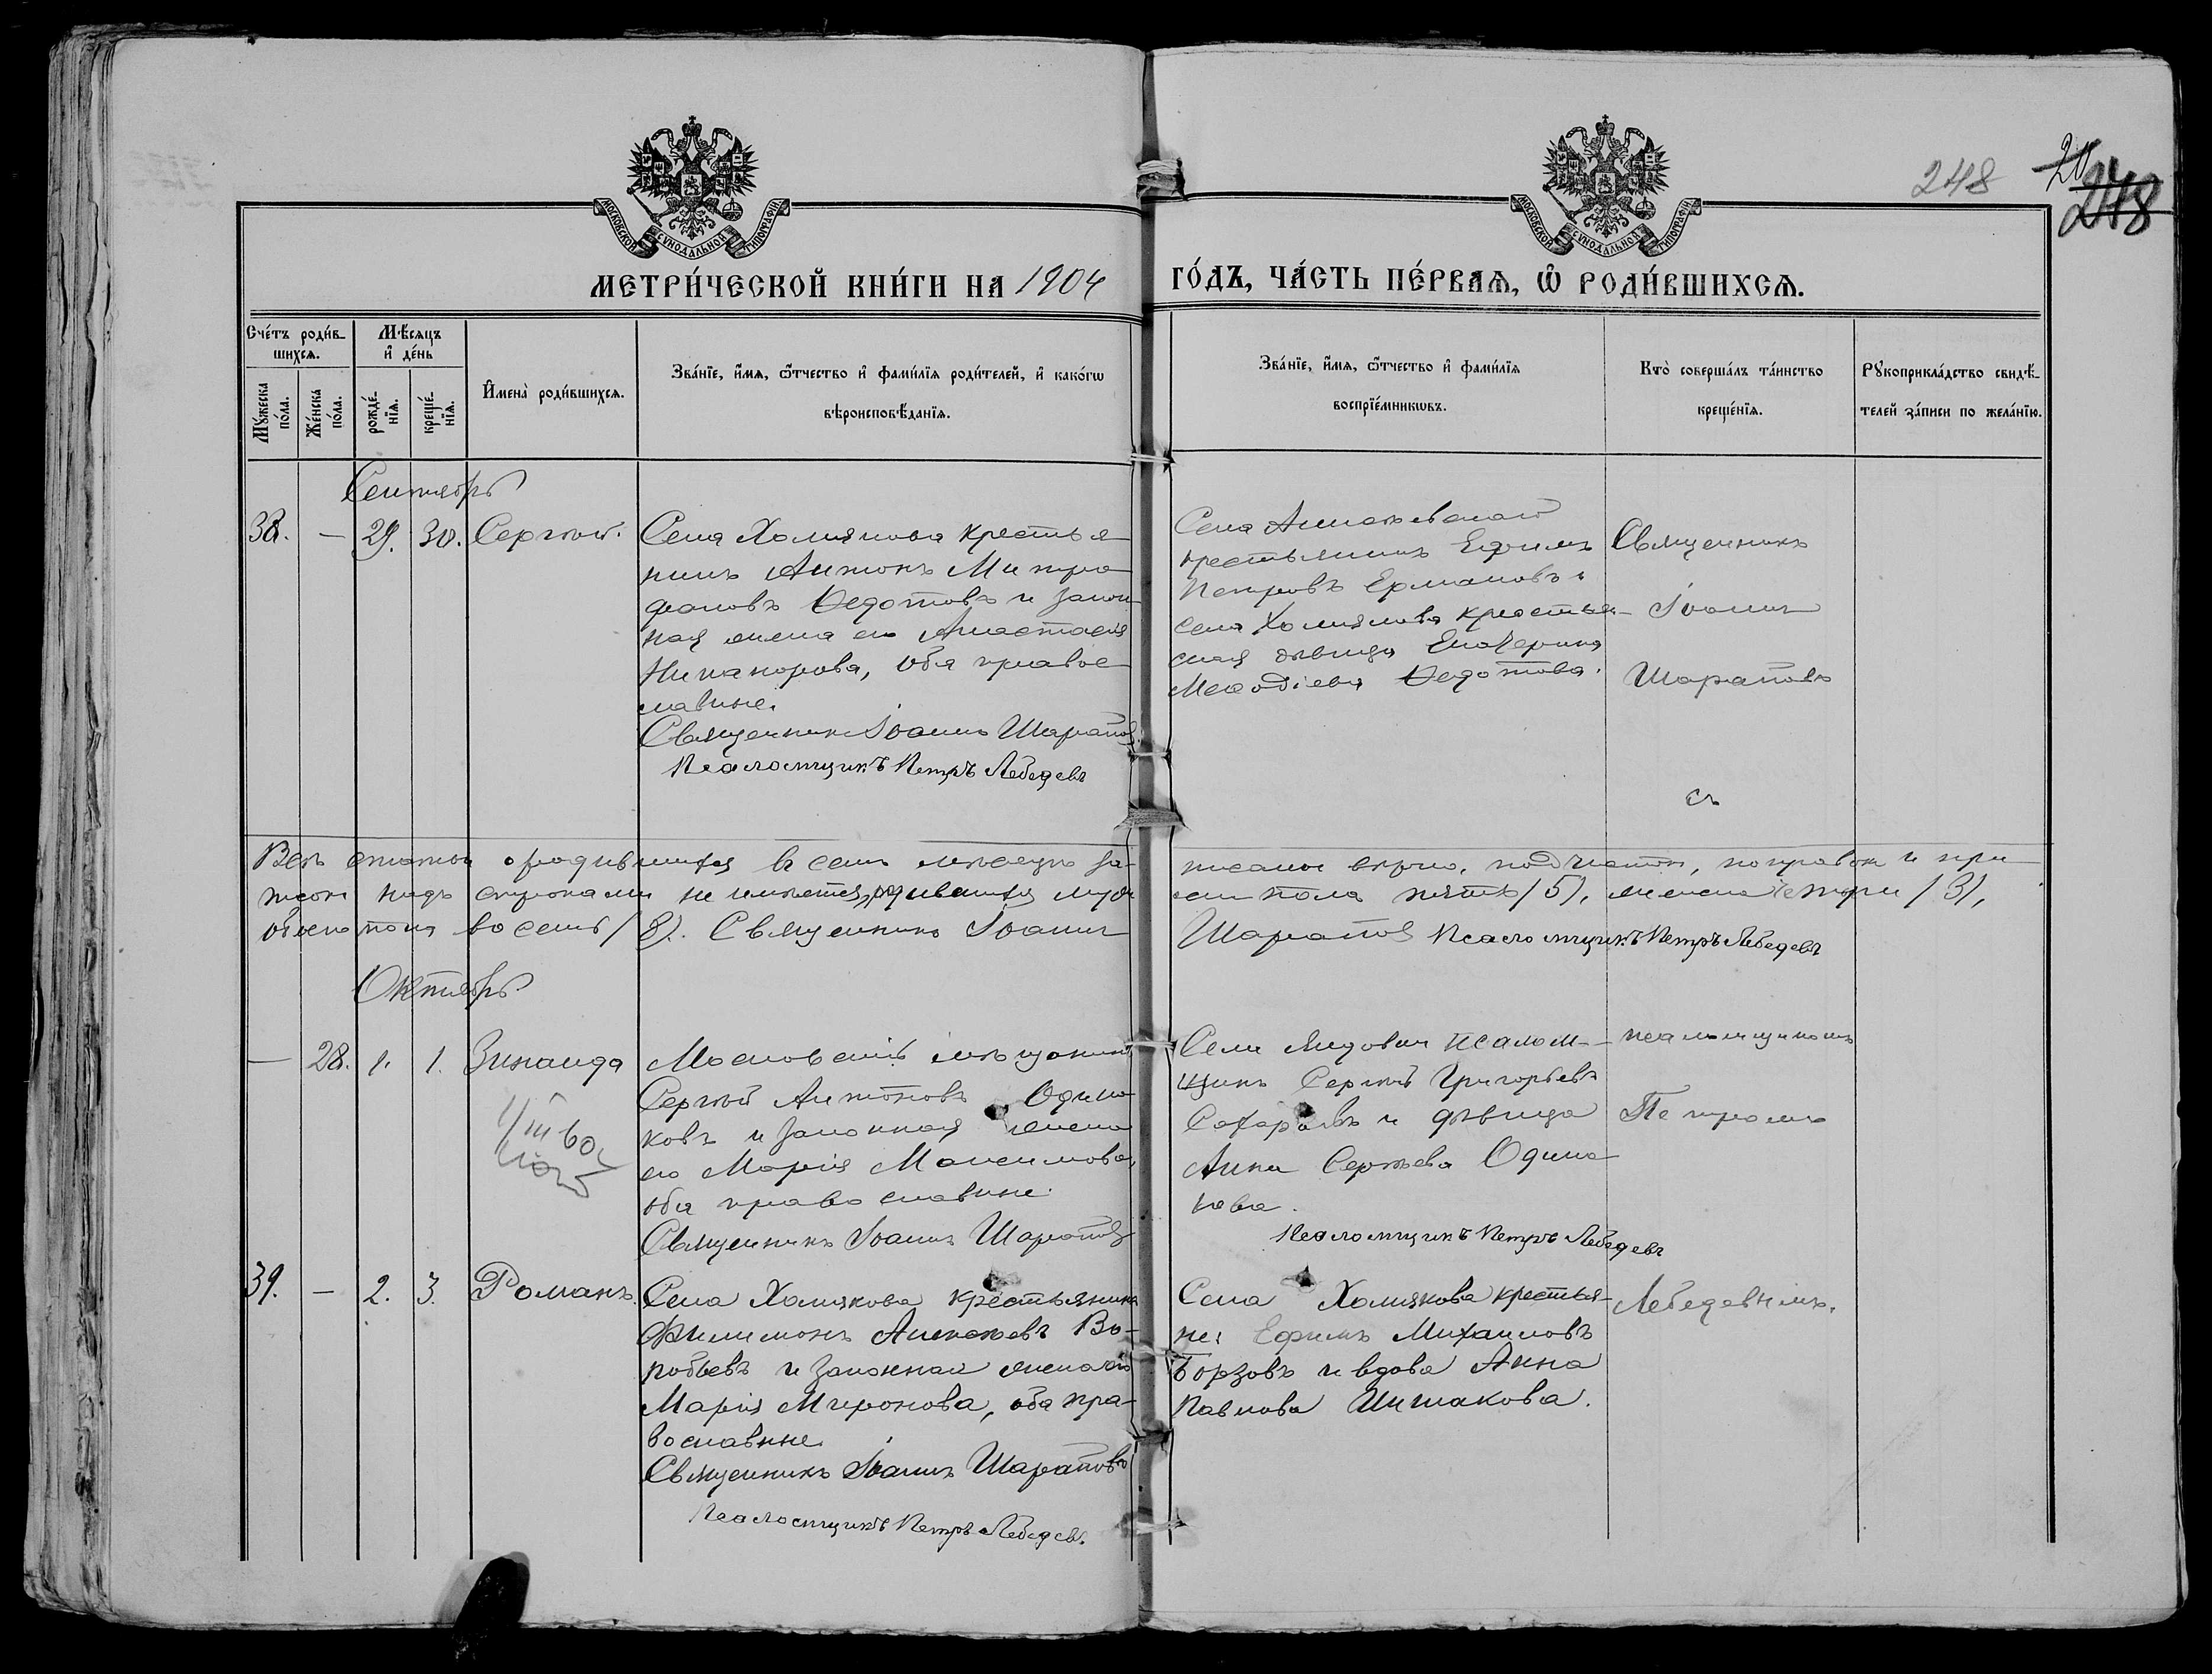 248 20 248
МОСКОВСКОЙ СѴНОДАЛЬНОЙ ТИПОГРАФІИ
МОСКОВСКОЙ СѴНОДАЛЬНОЙ ТИПОГРАФІИ
МЕТРИ́ЧЕСКОЙ КНИ́ГИ НА 1904 ГО́ДЪ, ЧА́СТЬ ПЕ́РВАѦ, Ѽ РОДИ́ВШИХСѦ.
Сче́тъ роди́в-
шихсѧ.
Му́жеска по́ла.
Же́нска по́ла.
Мѣ́сѧцъ
и҆ де́нь
рожде́-
нїѧ.
креще́-
нїѧ.
И҆мена̀ роди́вшихсѧ.
Зва́нїе, и҆́мѧ, ѻ҆́тчество и҆ фами́лїѧ роди́телей, и҆ како́гѡ
вѣроисповѣ́данїѧ.
Зва́нїе, и҆́мѧ, ѻ҆́тчество и҆ фами́лїѧ
воспрїе́мникѡвъ.
Кто̀ соверша́лъ та́инство
креще́нїѧ.
Рꙋкоприкла́дство свидѣ́-
телей за́писи по жела́нїю.
Сентябрь
38. — 29. 30. Сергѣй.
Села Холмякова крестья-
нинъ Антонъ Митро-
фановъ Ѳедотовъ и закон-
ная жена его Анастасія
Никанорова, оба правос-
лавные.
Священникъ Іоаннъ Шараповъ.
Псаломщикъ Петръ Лебедевъ
Села
крестьянинъ Ефимъ
Петровъ Ермаковъ и
села Холмякова крестьян-
ская дѣвица Екатерина
Меѳодіева Ѳедотова.
Священникъ
Іоаннъ
Шараповъ
съ
Всѣхъ статей о родившихся въ семъ мѣсяцѣ за-
писано вѣрно, подчистокъ, поправокъ и при-
писокъ надъ строками не имѣется, родившихся муж-
ска пола пять /5/, женска три /3/,
обоего пола восемь /8/. Священникъ Іоаннъ
Шараповъ Псаломщикъ Петръ Лебедевъ
Октябрь
— 28. 1. 1. Зинаида
Московскій мѣщанинъ
Сергѣй Антоновъ Одино-
ковъ и законная жена
его Марія Максимова,
оба православные.
Священникъ Іоаннъ Шараповъ
Села псалом-
щикъ Сергѣй Григорьевъ
Сахаровъ и дѣвица
Анна Сергѣева Одино-
кова.
Псаломщикъ Петръ Лебедевъ
псаломщикомъ
Петромъ
Лебедевымъ.
39. — 2. 3. Романъ.
Села Холмякова крестьянинъ
Филимонъ Алексѣевъ Во-
робьевъ и законная жена его
Марія Миронова, оба пра-
вославные.
Священникъ Іоаннъ Шараповъ
Псаломщикъ Петръ Лебедевъ.
Села Холмякова крестья-
не: Ефимъ Михаиловъ
Борзовъ и вдова Анна
Павлова Ишакова.